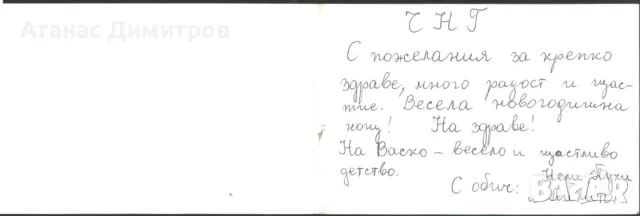 ЧНГ
Атанас Димитров
С пожелания за крепко
здраве, много радост и щас-
тие. Весела новогодишна
нощ! На здраве!
На Васко - весело и щастливо
детство.
С обич: Нели